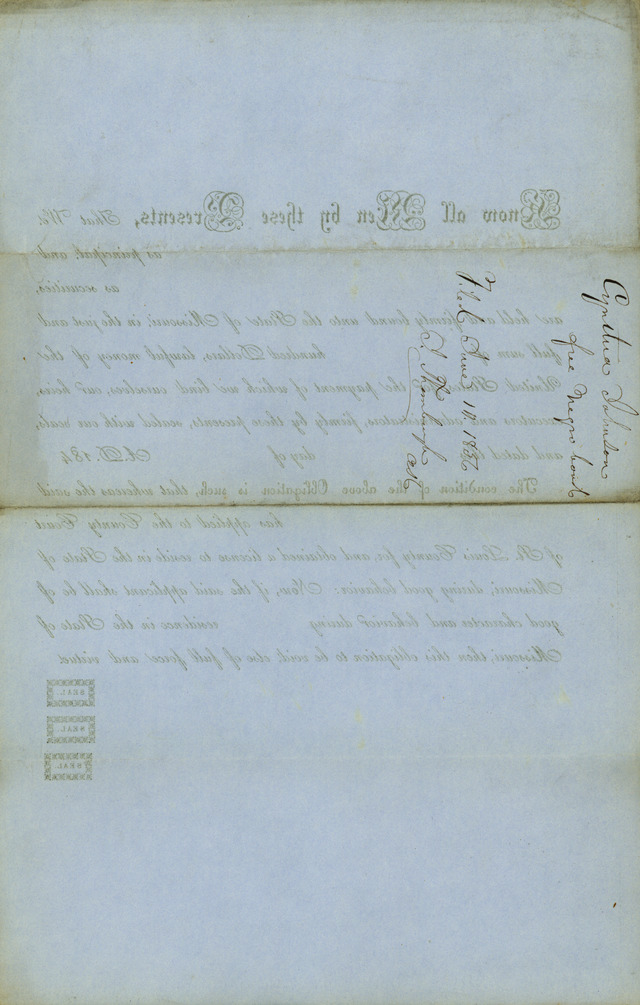 Cynthia Johnson
free Negro bond
Filed June 10. 1846
Know all Men by these Presents, That We,
as principal, and
as securities,
are held and firmly bound unto the State of Missouri, in the just and
full sum hundred Dollars, lawful money of the
United States, the payment of which we bind ourselves, our heirs,
executors and administrators, firmly by these presents, sealed with our seals,
and dated this day of A.D. 184
The condition of the above Obligation is such, that whereas the said
has applied to the County Court
of St. Louis County for, and obtained a license to reside in the State of
Missouri, during good behavior: Now, if the said applicant shall be
of good character and behavior during residence in the State of
Missouri, then this obligation to be void, else of full force and virtue.
SEAL
SEAL
SEAL